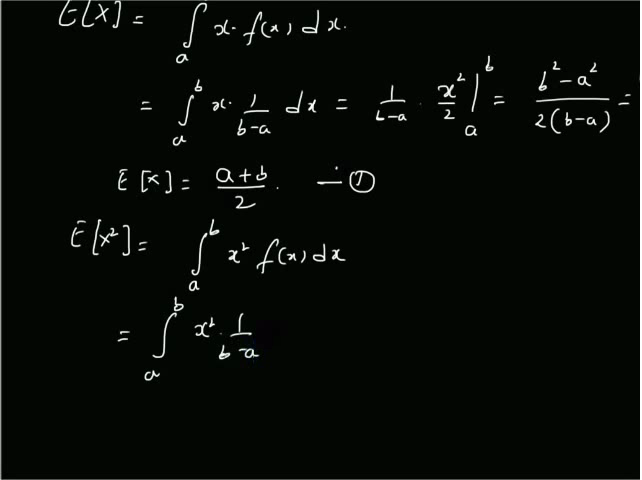 E[X] = ∫ₐ x. f(x) dx.
= ∫ₐᵇ x. 1/(b-a) dx = 1/(b-a) . x²/2 |ₐᵇ = (b² - a²)/(2(b-a)) =
E[X] = (a+b)/2 . — ①
E[X²] = ∫ₐᵇ x² f(x) dx
= ∫ₐᵇ x² . 1/(b-a)